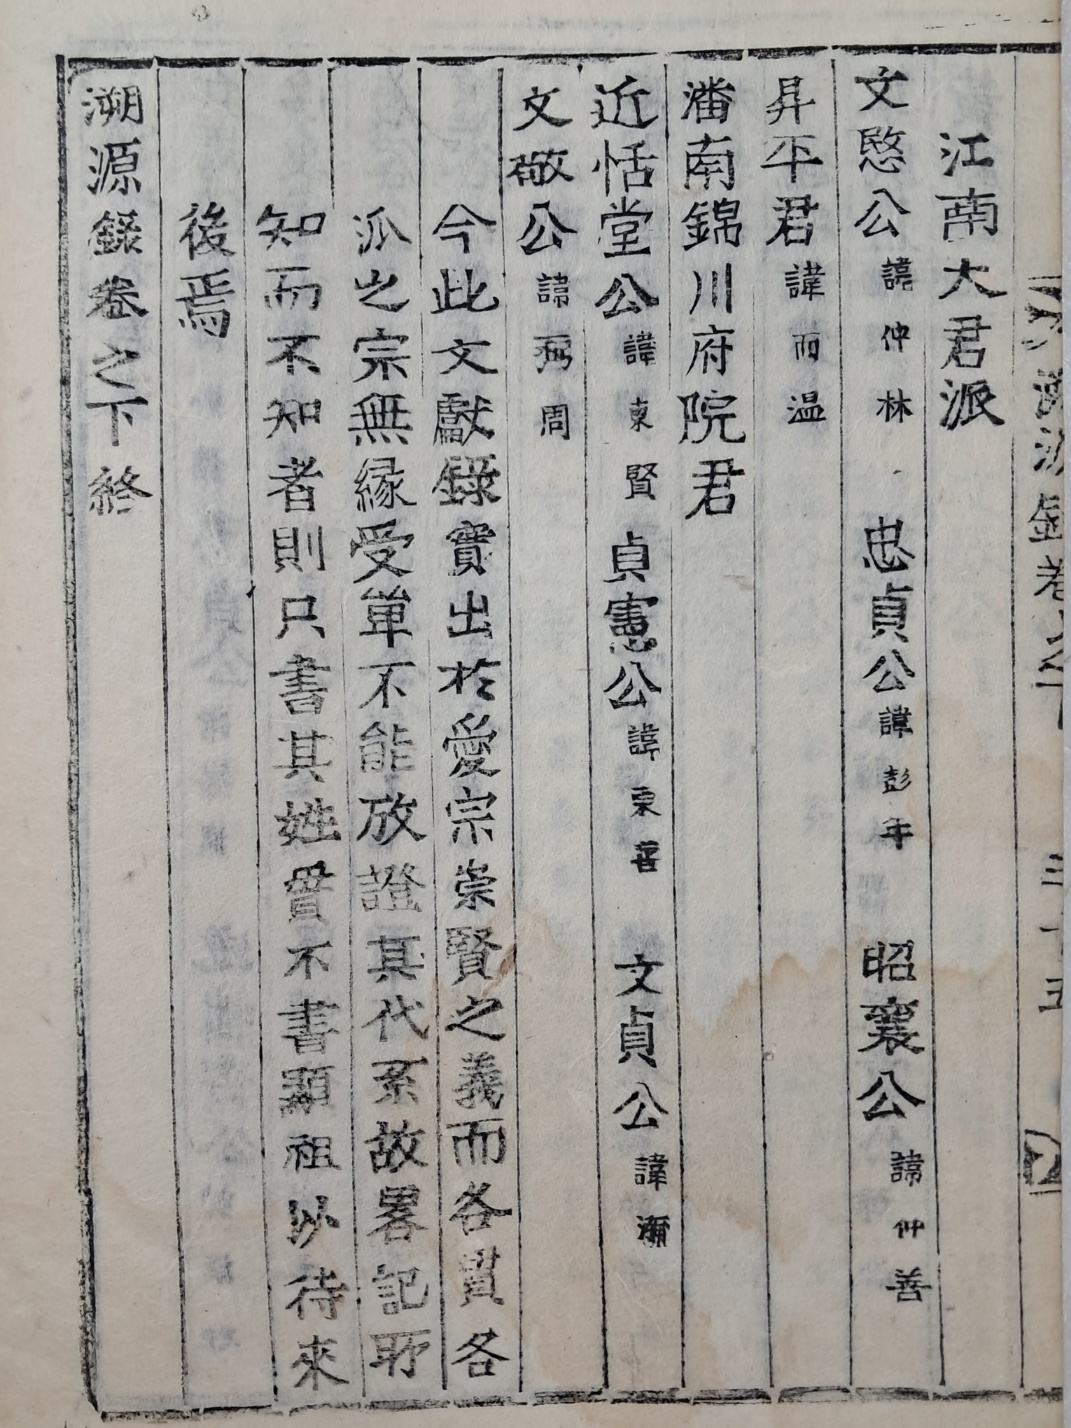 溯源錄卷之下 三十五
江南大君派
文愍公諱仲林 忠貞公諱彭年 昭襄公諱仲善
昇平君諱而溫
潘南錦川府院君
近恬堂公諱東賢 貞憲公諱東善 文貞公諱瀰
文敬公諱弼周
今此文獻錄實出於愛宗崇賢之義而各貫各
派之宗無緣受單不能放證其代系故畧記所
知而不知者則只書其姓貫不書顯祖以待來
後焉
溯源錄卷之下終